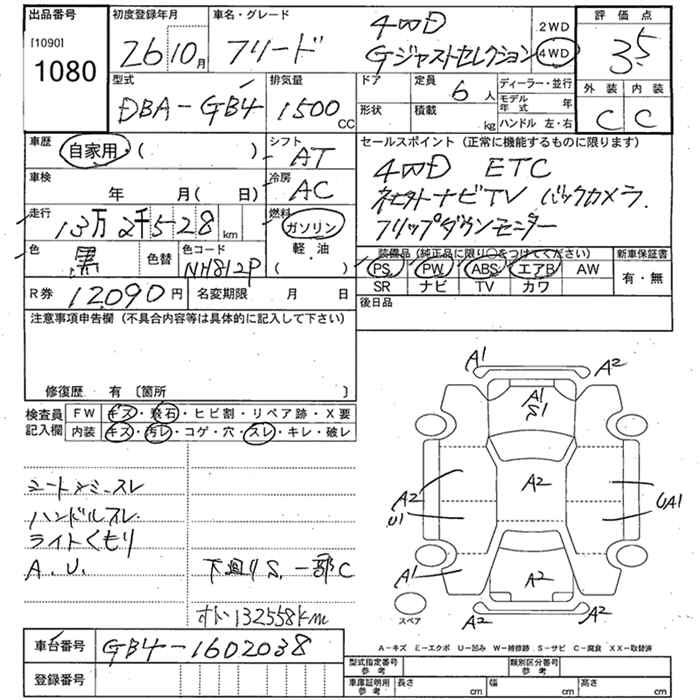 出品番号
[1090]
1080
初度登録年月
26 10月
車名・グレード
フリード
4WD
Gジャストセレクション
2WD
4WD
評価点
3.5
外装 内装
C C
型式
DBA-GB4
排気量
1500 CC
ドア
定員
6人
形状
積載
kg
ディーラー・並行
モデル年式 年
ハンドル 左・右
車歴
自家用 ( )
シフト
AT
車検
年 月( 日)
冷房
AC
走行
13万2千528 km
燃料
ガソリン
軽・油
( )
色
黒
色替
色コード
NH812P
R券 12,090円
名変期限 月 日
セールスポイント (正常に機能するものに限ります)
4WD ETC
ナビTV バックカメラ
フリップダウンモニター
装備品 (純正品に限り○をつけてください)
新車保証書
PS PW ABS エアB AW
SR ナビ TV カワ
有・無
後日品
注意事項申告欄 (不具合内容等は具体的に記入して下さい)
修復歴 有 〔箇所 〕
検査員記入欄
FW キズ・飛石・ヒビ割・リペア跡・X要
内装 キズ・汚レ・コゲ・穴・スレ・キレ・破レ
シートシミ・スレ
ハンドルスレ
ライトくもり
A.U.
下廻りS. 一部C
132558km
A1
A2
A1
S1
A2
A2
U1
UA1
A1
A2
A2
A2
スペア
A-キズ E-エクボ U-凹み W-補修跡 S-サビ C-腐食 XX-取替済
車台番号
GB4-1602038
登録番号
型式指定番号 参考
類別区分番号 参考
車庫証明用 参考
長さ cm
幅 cm
高さ cm